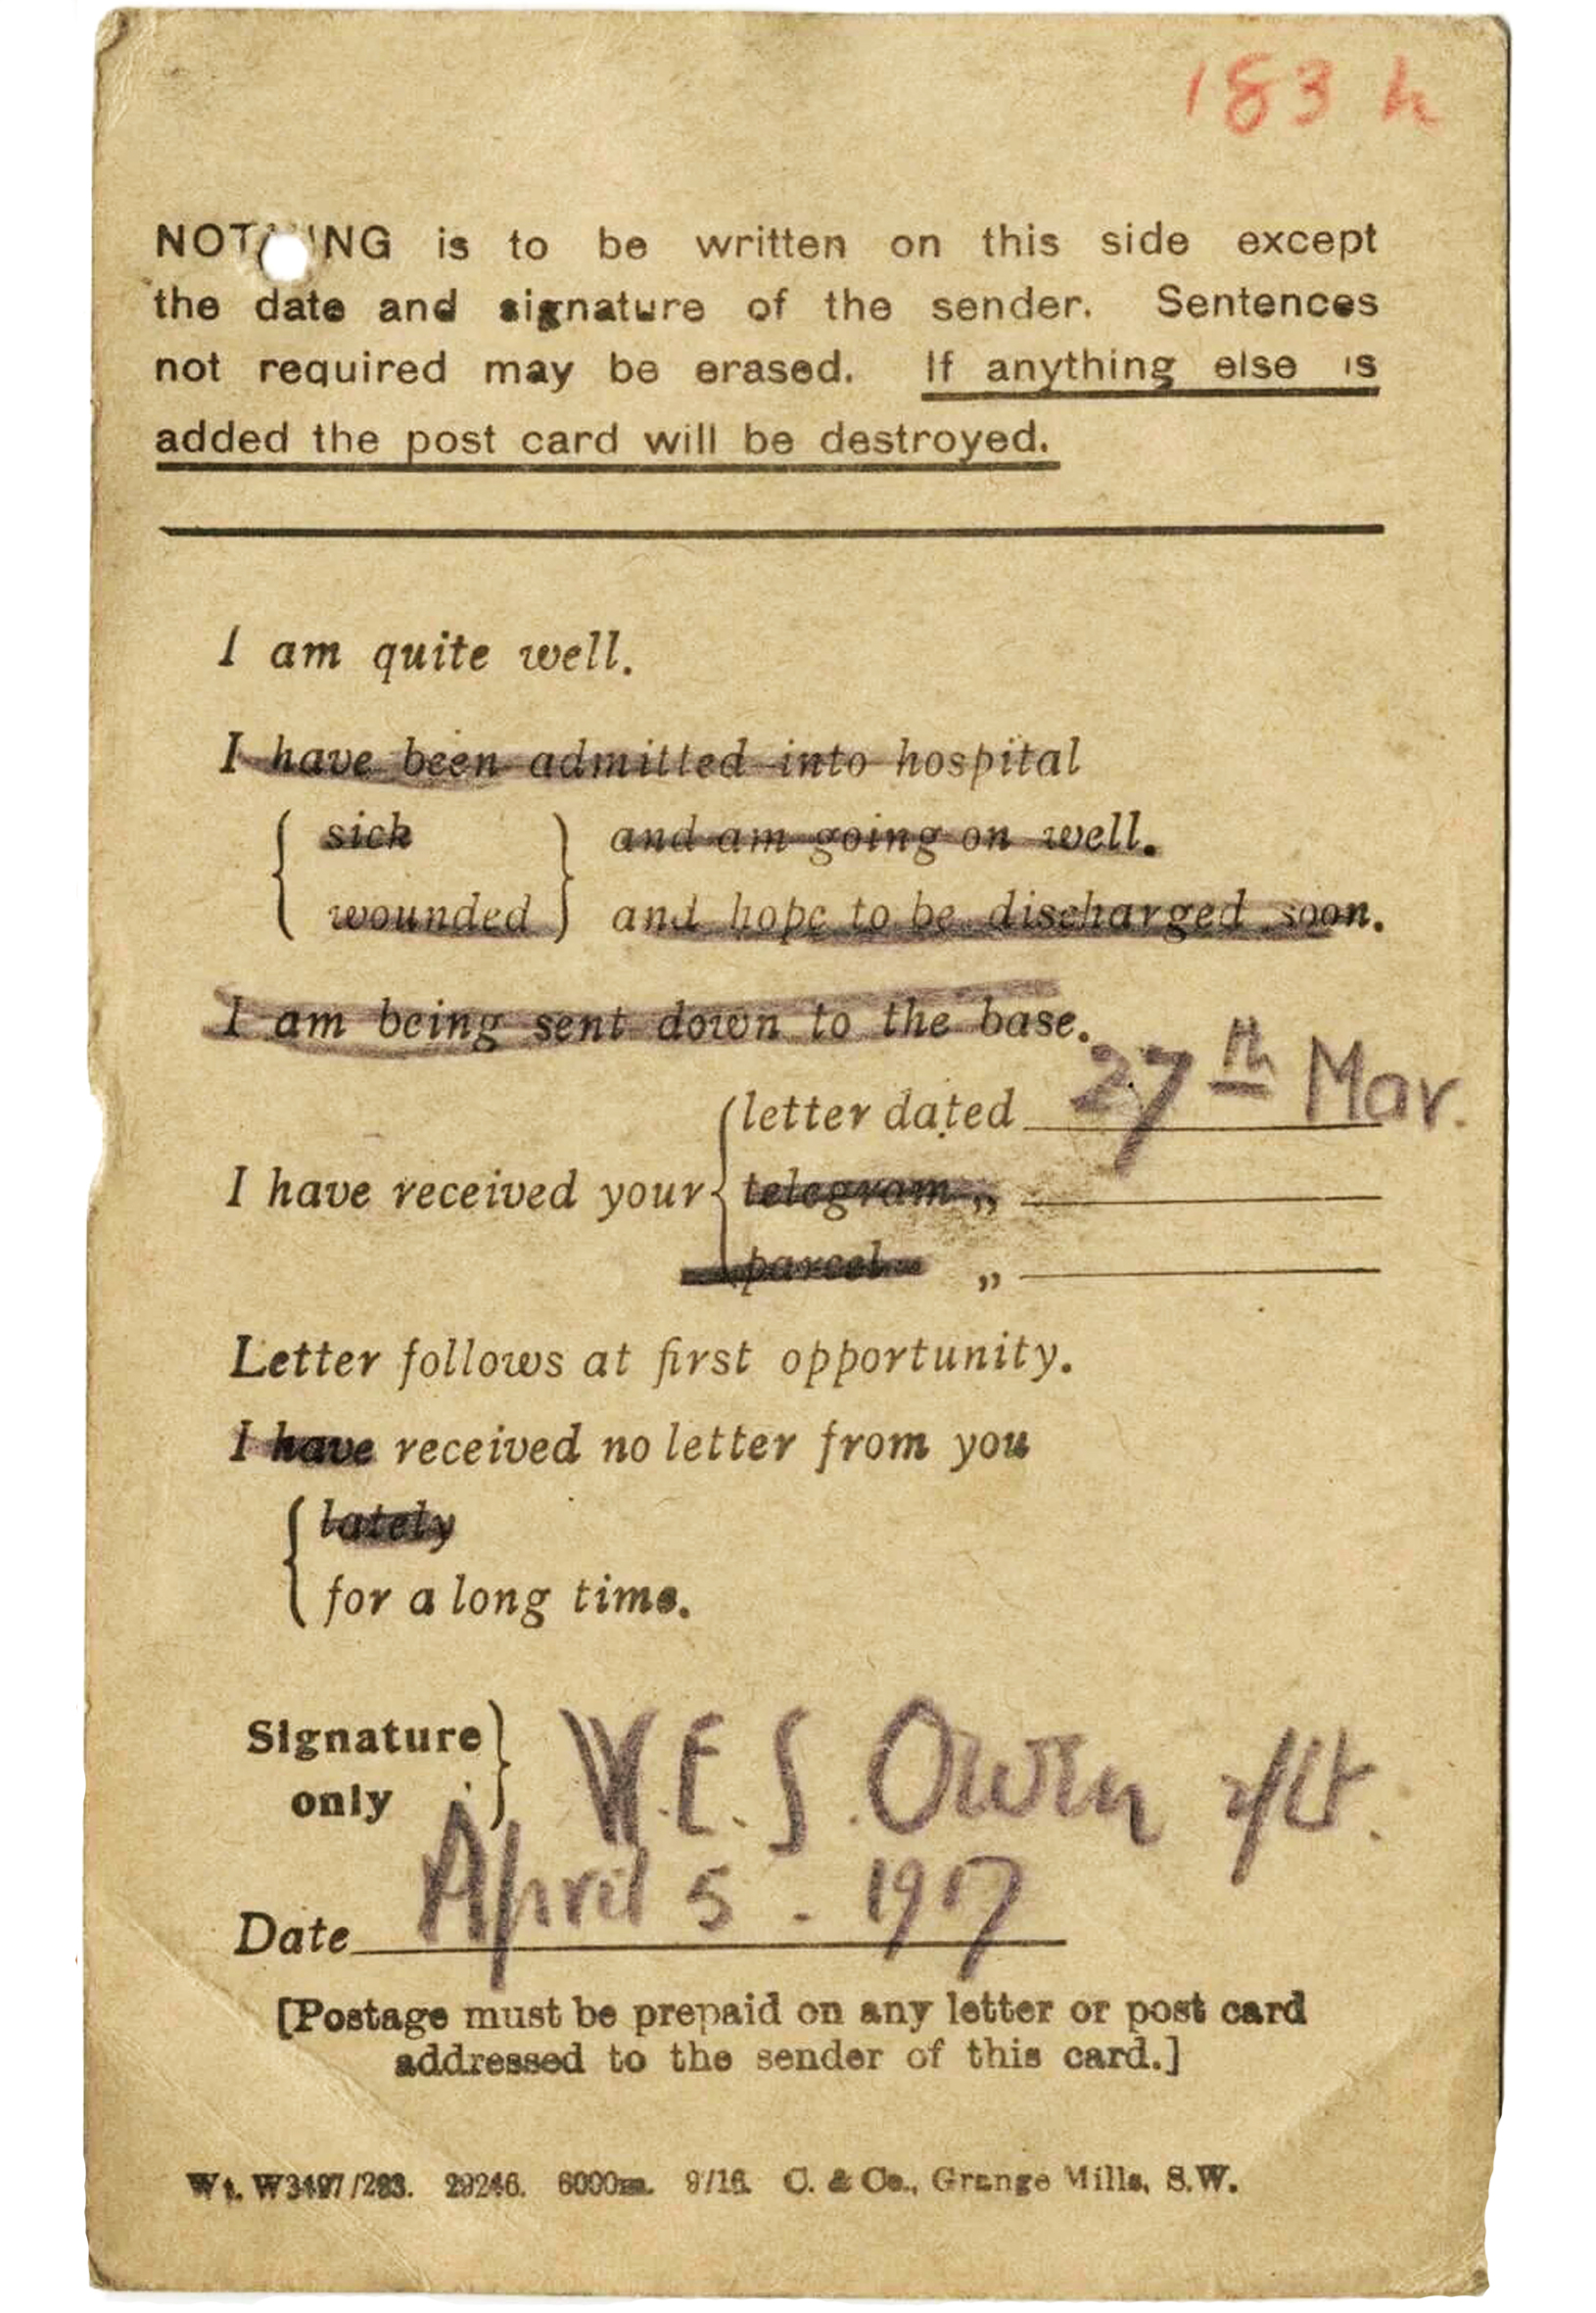 183 h
NOTHING is to be written on this side except
the date and signature of the sender. Sentences
not required may be erased. If anything else is
added the post card will be destroyed.
I am quite well.
I have been admitted into hospital
sick and am going on well.
wounded and hope to be discharged soon.
I am being sent down to the base.
letter dated 27th Mar.
I have received your telegram „
parcel „
Letter follows at first opportunity.
I have received no letter from you
lately
for a long time.
Signature
only W.E.S. Owen 2/Lt.
Date April 5 - 1917
[Postage must be prepaid on any letter or post card
addressed to the sender of this card.]
Wt. W3497/293. 29246. 6000m. 9/16. C. & Co., Grange Mills, S.W.